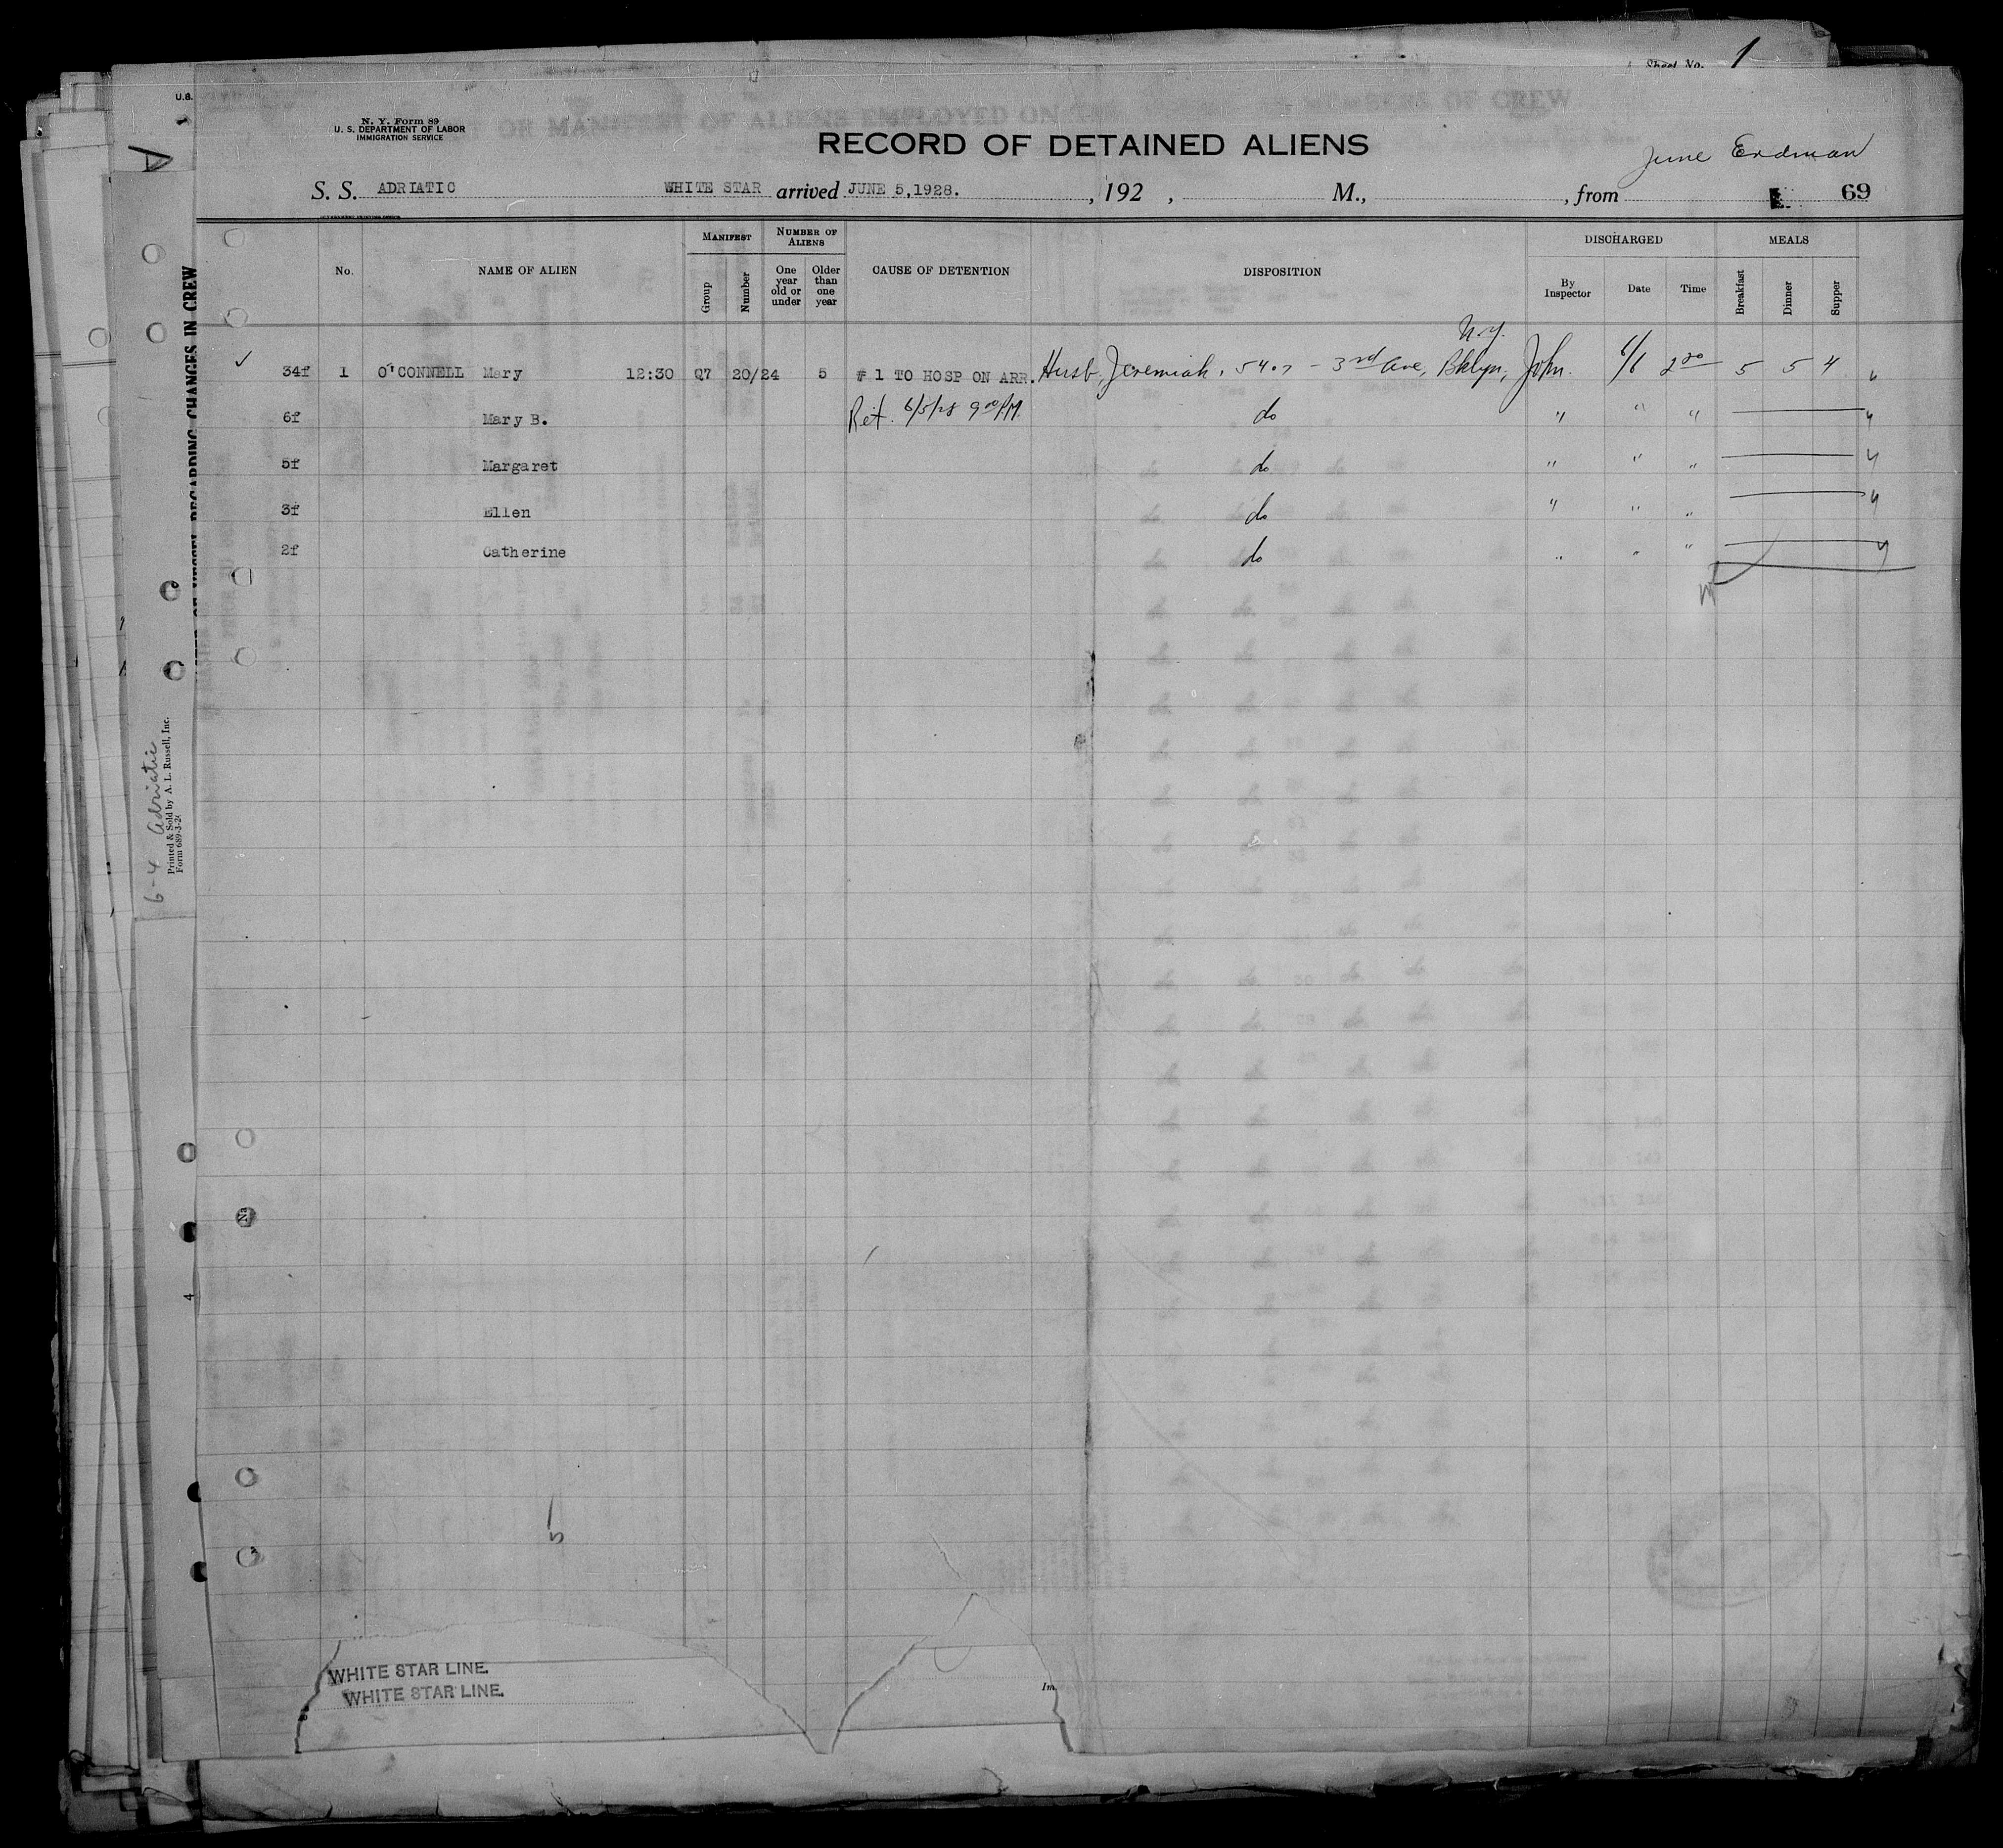 Sheet No. 1
U.S.
N. Y. Form 89
U. S. DEPARTMENT OF LABOR
IMMIGRATION SERVICE
RECORD OF DETAINED ALIENS
June Erdman
S. S. ADRIATIC WHITE STAR arrived JUNE 5,1928. , 192 , M., , from 69
MANIFEST NUMBER OF ALIENS DISCHARGED MEALS
No. NAME OF ALIEN Group Number One year old or under Older than one year CAUSE OF DETENTION DISPOSITION By Inspector Date Time Breakfast Dinner Supper
N.Y.
✓ 34f 1 O'CONNELL Mary 12:30 Q7 20/24 5 # 1 TO HOSP ON ARR. Husb, Jeremiah, 5407 - 3rd Ave, Bklyn, John. 6/6 2 00 5 5 4
6f Mary B. Ret. 6/5/28 9 00 PM. do " " "
5f Margaret do " " "
3f Ellen do " " "
2f Catherine do " " "
WHITE STAR LINE.
WHITE STAR LINE.
Im
6-4 Adriatic
Printed & Sold by A. L. Russell, Inc.
REGARDING CHANGES IN CREW
OR MANIFEST OF ALIENS EMPLOYED ON MEMBERS OF CREW